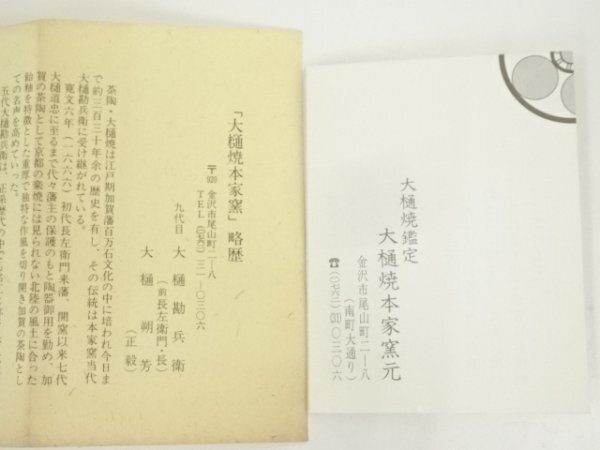 「大樋焼本家窯」略歴
〒920 金沢市尾山町二ー八
TEL(〇七六二)三一ー〇三〇六
九代目 大樋勘兵衛
(前長左衛門・長)
大樋朔芳
(正毅)
茶陶・大樋焼は江戸期加賀藩百万石文化の中に培われ今日ま
で約三百三十年余の歴史を有し、その伝統は本家窯当代
大樋勘兵衛に受け継がれている。
寛文六年(一六六六)初代長左衛門来藩、開窯以来七代
大樋道忠に至るまで代々藩主の保護のもと陶器御用を勤め、加
賀の茶陶として京都の楽焼には見られない北陸の風土に合った
飴釉を特徴とした重厚で独特な作風を切り開き加賀の茶陶とし
ての名声を高めていった。
五代大樋勘兵衛は、
大樋焼鑑定
大樋焼本家窯元
金沢市尾山町二ー八
(南町大通り)
☎(〇七六二)(31)〇三〇六